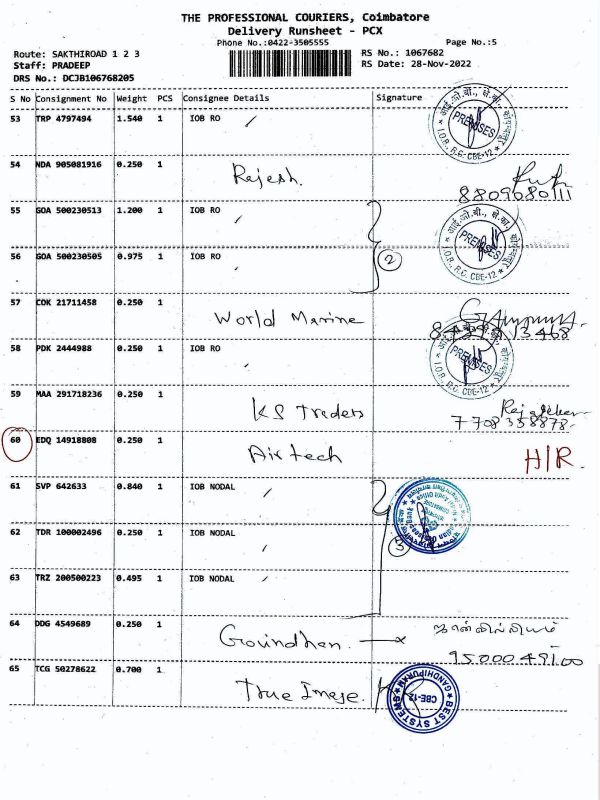 THE PROFESSIONAL COURIERS, Coimbatore
Delivery Runsheet - PCX
Phone No.:0422-3505555 Page No.:5
Route: SAKTHIROAD 1 2 3 RS No.: 1067682
Staff: PRADEEP RS Date: 28-Nov-2022
DRS No.: DCJB106768205
S No Consignment No Weight PCS Consignee Details Signature
53 TRP 4797494 1.540 1 IOB RO
PREMSES
I.O.B, R.O. CBE-12
54 NDA 905081916 0.250 1 Rajesh
8809080111
55 GOA 500230513 1.200 1 IOB RO
PREMSES
I.O.B, R.O. CBE-12
56 GOA 500230505 0.975 1 IOB RO
2
57 COK 21711458 0.250 1 World Marine
58 PDK 2444988 0.250 1 IOB RO
PREMSES
I.O.B, R.O. CBE-12
59 MAA 291718236 0.250 1 KS Traders
7708358878
60 EDQ 14918808 0.250 1 Airtech H/R.
61 SVP 642633 0.840 1 IOB NODAL
62 TDR 100002496 0.250 1 IOB NODAL
3
63 TRZ 200500223 0.495 1 IOB NODAL
64 DDG 4549689 0.250 1 Govindhan
65 TCG 50278622 0.700 1 True Image
BEST SYSTEMS
CBE-12
GANDHIPURAM